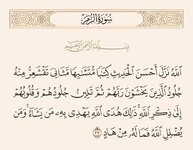 سُورَةُ الزُّمَرِ
بِسْمِ اللَّهِ الرَّحْمَٰنِ الرَّحِيمِ
اللَّهُ نَزَّلَ أَحْسَنَ الْحَدِيثِ كِتَابًا مُّتَشَابِهًا مَّثَانِيَ تَقْشَعِرُّ مِنْهُ
جُلُودُ الَّذِينَ يَخْشَوْنَ رَبَّهُمْ ثُمَّ تَلِينُ جُلُودُهُمْ وَقُلُوبُهُمْ
إِلَىٰ ذِكْرِ اللَّهِ ذَٰلِكَ هُدَى اللَّهِ يَهْدِي بِهِ مَن يَشَاءُ وَمَن
يُضْلِلِ اللَّهُ فَمَا لَهُ مِنْ هَادٍ